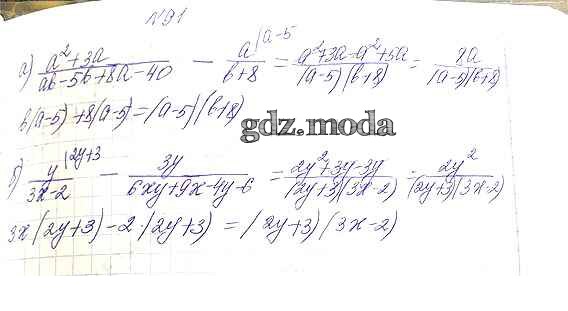 №91
а) (a²+3a)/(ab-5b+8a-40) - a/(b+8) |a-5 = (a²+3a-a²+5a)/((a-5)(b+8)) = 8a/((a-5)(b+8))
b(a-5)+8(a-5)=(a-5)(b+8)
gdz.moda
б) y/(3x-2) |2y+3 - 3y/(6xy+9x-4y-6) = (2y²+3y-3y)/((2y+3)(3x-2)) = 2y²/((2y+3)(3x-2))
3x(2y+3)-2·(2y+3) = (2y+3)(3x-2)